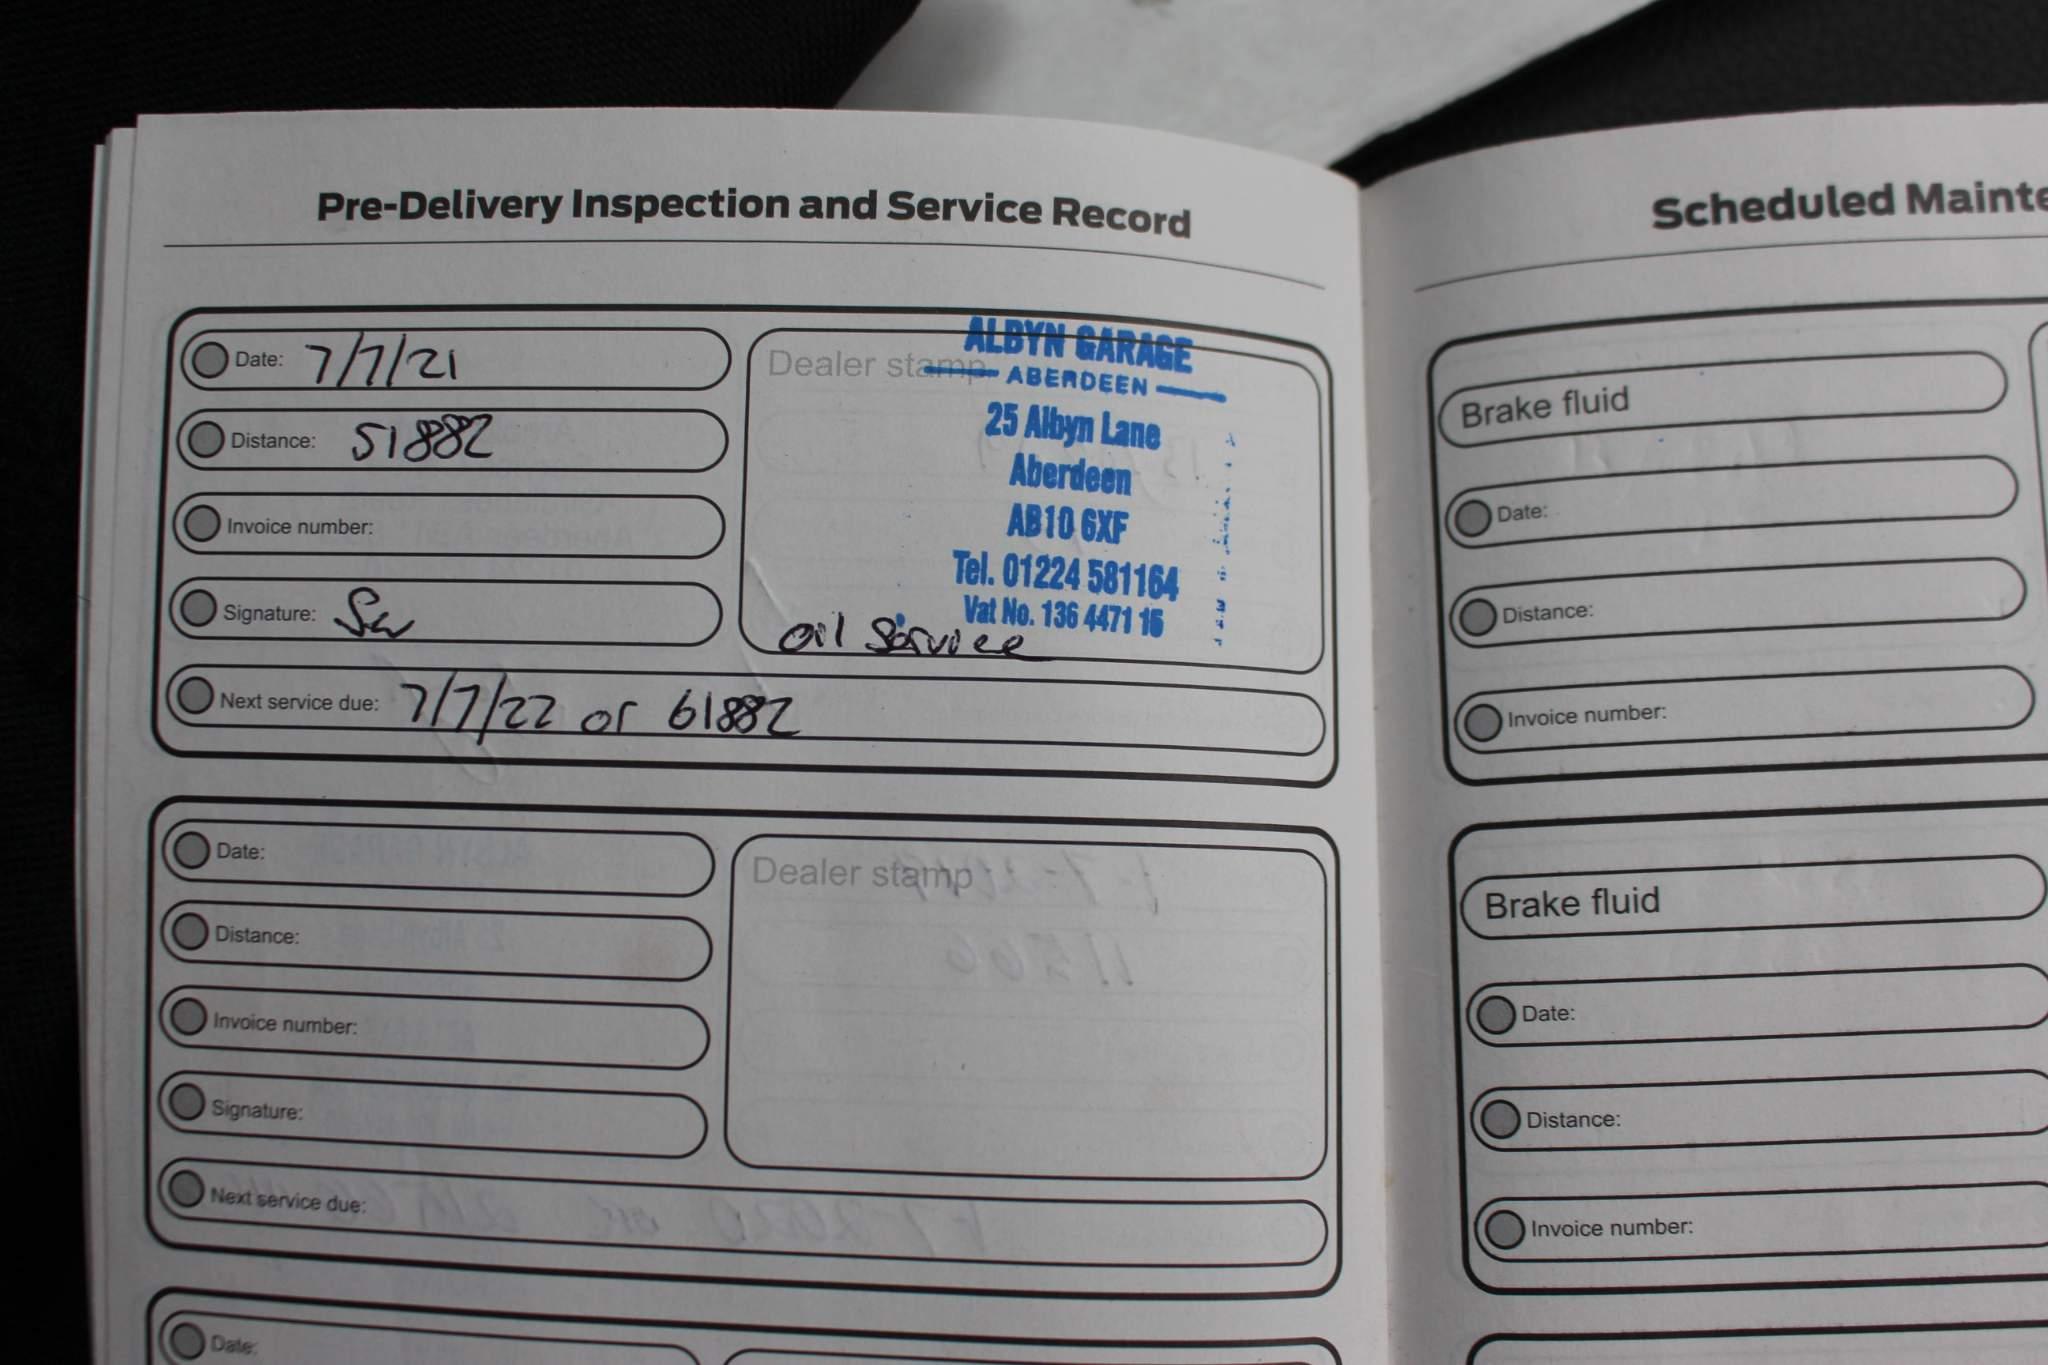 Pre-Delivery Inspection and Service Record
Date: 7/7/21
Distance: 51882
Invoice number:
Signature:
Next service due: 7/7/22 or 61882
Dealer stamp
ALBYN GARAGE
ABERDEEN
25 Albyn Lane
Aberdeen
AB10 6XF
Tel. 01224 581164
Vat No. 136 4471 16
oil service
Date:
Distance:
Invoice number:
Signature:
Next service due:
Dealer stamp
Date:
Scheduled Mainte
Brake fluid
Date:
Distance:
Invoice number:
Brake fluid
Date:
Distance:
Invoice number: